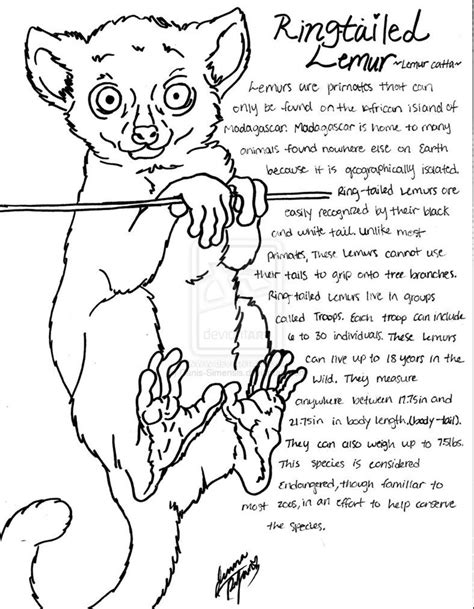 Ringtailed
Lemur
~Lemur catta~
Lemurs are primates that can
only be found on the African island of
Madagascar. Madagascar is home to many
animals found nowhere else on Earth
because it is geographically isolated.
Ring-tailed Lemurs are
easily recognized by their black
and white tail. Unlike most
primates, These Lemurs cannot use
their tails to grip onto tree branches.
Ring tailed Lemurs live in groups
called Troops. Each troop can include
6 to 30 individuals. These Lemurs
can live up to 18 years in the
Wild. They measure
anywhere between 17.75in and
21.75in in body length.(body-tail).
They can also weigh up to 7.5lbs.
This species is considered
Endangered, though familiar to
most zoos, in an effort to help conserve
the species.
deviantART